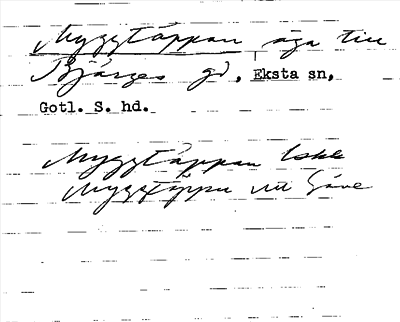 Myggtäppan äga till
Bjärges gd, Eksta sn,
Gotl. S. hd.
Myggtäppan
Myggtäppa